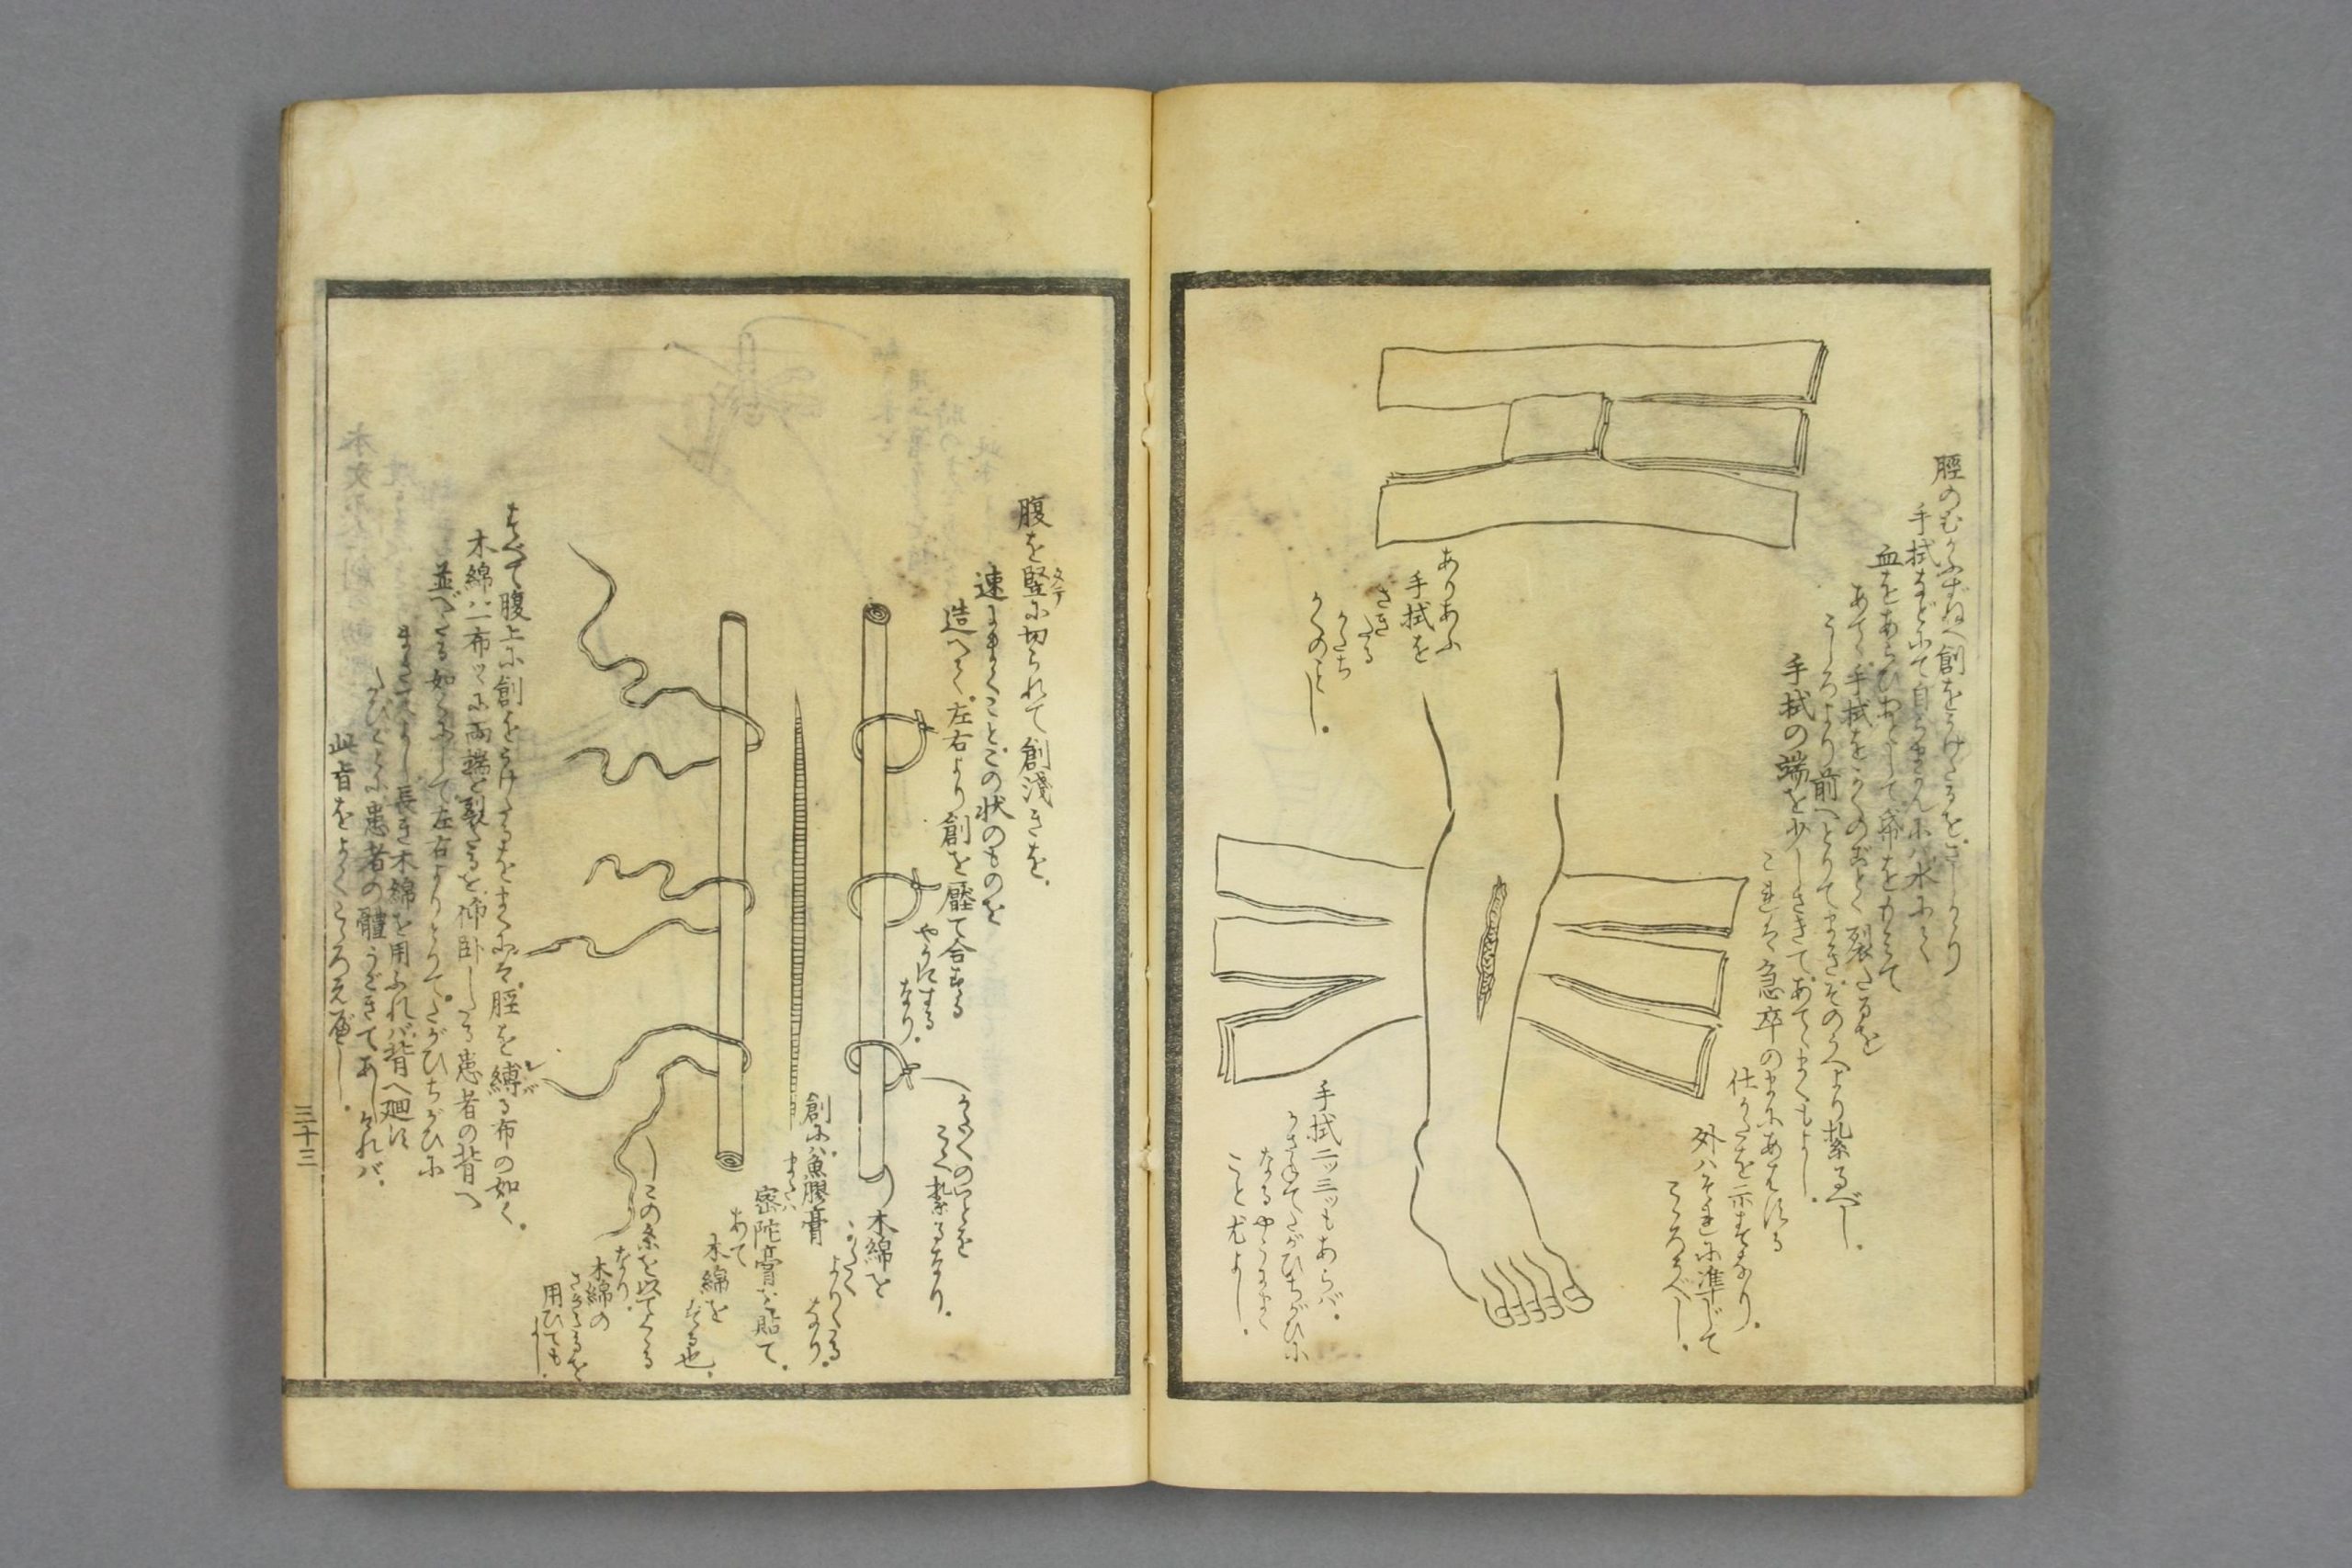 脛のむかふずねへ創をうけたるを。さしかゝり
手拭などにて自らまかんにハ水にて
血をあらひおとして。帛をもとて
あてゝ手拭をかくのごとく裂たるを
うしろより前へとりてまき。そのうへより紮るべし。
手拭の端を少しさきて。あてゝまくもよし。
これは急卒のまにあはする
仕かたを示すなり。
外ハそれに準じて
こゝろうべし。
ありあふ
手拭を
さき
たる
かたち
かくのごとし。
手拭二ッ三ッもあらバ。
かさねてたがひちがひに
なるやうにまく
こと尤よし。
腹を竪に切られて創淺きを。
タテ
速にまくこと。この状のものを
造へて。左右より創を壓て合する
やうにする
なり。
かくのごとを
こゝ紮るなり。
木綿を
かたく
よりたる
なり。
創にハ魚膠膏
または
密陀膏など貼て。
あて
木綿を
する也。
この糸を以てくゝる
なり。
木綿の
さきたるを
用ひても
よし。
すべて腹上に創をうけたるをまくには。脛を縛る布の如く。
シバ
木綿ハ二布ツヽに両端を裂たるを。仰臥したる患者の背へ
並べたる如くにして。左右よりとりて。たがひちがひに
まきてよし。長き木綿を用ふれバ背へ廻す
たびごとに患者の體うごきてあしければ。
此旨をよくこゝろえべし。
三十三